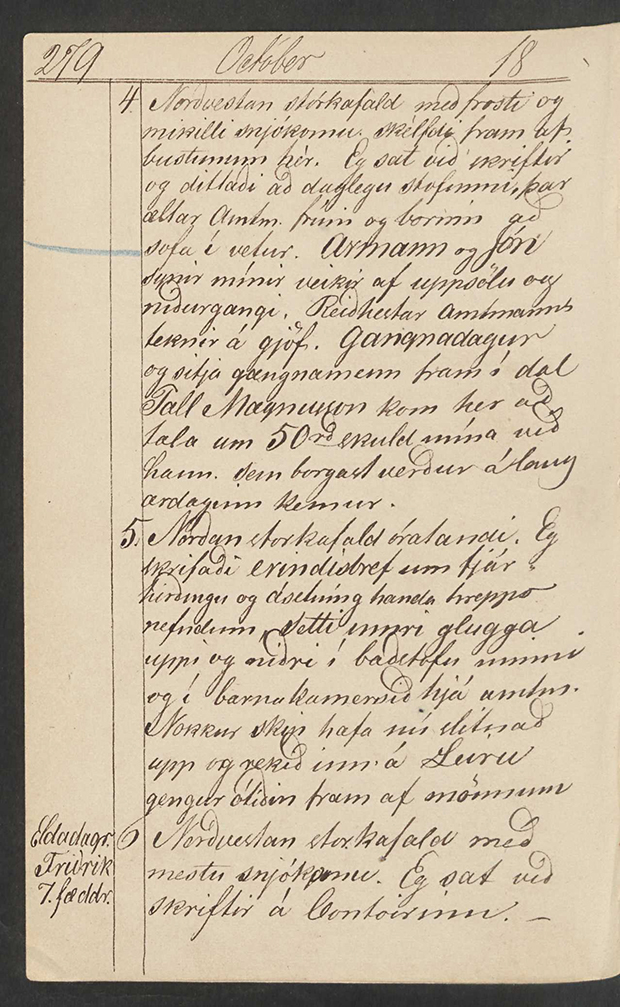 279 October 18
4. Nordvestan stórkafald med frosti og
mikilli snjókomu. skélfdi fram af
bustunum hér. Eg sat vid skriftir
og dittadi ad daglegu stofunni, þar
ætlar Amtm. frúin og börnin ad
sofa í vetur. Armann og Jón
synir mínir veikir af uppsölu og
nidurgangi. Reidhestar amtmanns
teknir á gjöf. Gangnadagur
og sitja gangnamenn fram í dal
Páll Magnusson kom her ad
tala um 50rd skuld mína vid
hann. sem borgast verdur á laug
ardaginn kemur.
5. Nordan storkafald óratandi. Eg
skrifadi erindisbref um fjár-
hirdingu og ásetníng handa hrepps
nefndum, setti innri glugga
uppi og nidri í badstofu minni
og í barnakamersid hjá amtm.
Nokkur skip hafa nú slitnad
upp og rekid inn á Leiru
gengur ótidin fram af mönnum
Eldadagr.
Fridrik
7. fæddr.
6 Nordvestan storkafald med
mestu snjókomu. Eg sat vid
skriftir á Contoirinu. –